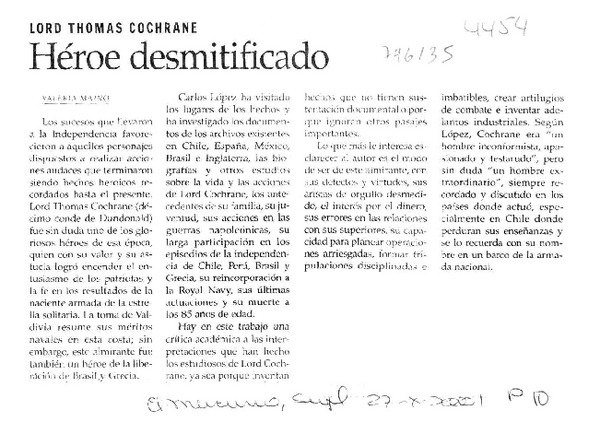 LORD THOMAS COCHRANE
Héroe desmitificado
4454
746135
VALERIA MAINO
Los sucesos que llevaron
a la Independencia favore-
cieron a aquellos personajes
dispuestos a realizar accio-
nes audaces que terminaron
siendo hechos heroicos re-
cordados hasta el presente.
Lord Thomas Cochrane (dé-
cimo conde de Dundonald)
fue sin duda uno de los glo-
riosos héroes de esa época,
quien con su valor y su as-
tucia logró encender el en-
tusiasmo de los patriotas y
la fe en los resultados de la
naciente armada de la estre-
lla solitaria. La toma de Val-
divia resume sus méritos
navales en esta costa; sin
embargo, este almirante fue
también un héroe de la libe-
ración de Brasil y Grecia.
Carlos López ha visitado
los lugares de los hechos y
ha investigado los documen-
tos de los archivos existentes
en Chile, España, México,
Brasil e Inglaterra, las bio-
grafías y otros estudios
sobre la vida y las acciones
de Lord Cochrane, los ante-
cedentes de su familia, su ju-
ventud, sus acciones en las
guerras napoleónicas, su
larga participación en los
episodios de la independen-
cia de Chile, Perú, Brasil y
Grecia, su reincorporación a
la Royal Navy, sus últimas
actuaciones y su muerte a
los 85 años de edad.
Hay en este trabajo una
crítica académica a las in-
terpretaciones que han he-
cho los estudiosos de Lord Coch-
rane, ya sea porque inventan
hechos que no tienen sus-
tentación documental o por-
que ignoran otros pasajes
importantes.
Lo que más le interesa es-
clarecer al autor es el modo
de ser de este almirante, con
sus defectos y virtudes, sus
aristas de orgullo desmedi-
do, el interés por el dinero,
sus errores en las relaciones
con sus superiores, su capa-
cidad para planear operacio-
nes arriesgadas, formar tri-
pulaciones disciplinadas e
imbatibles, crear artilugios
de combate e inventar ade-
lantos industriales. Según
López, Cochrane era "un
hombre inconformista, apa-
sionado y testarudo", pero
sin duda "un hombre ex-
traordinario", siempre re-
cordado y discutido en los
países donde actuó, espe-
cialmente en Chile donde
perduran sus enseñanzas y
se lo recuerda con su nom-
bre en un barco de la arma-
da nacional.
El Mercurio, Supl 27-X-2001 P 10